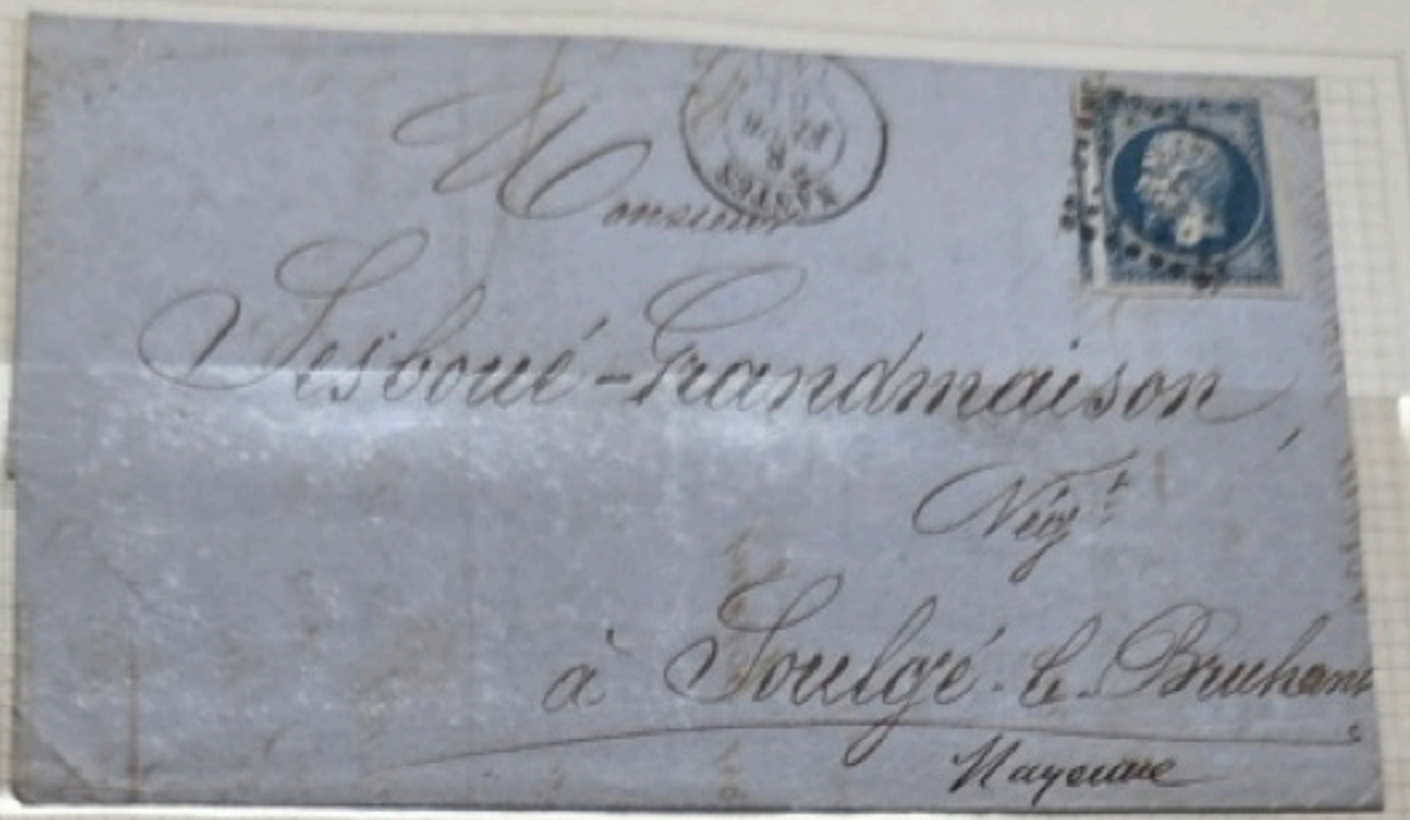 Monsieur
Sesboué-Grandmaison,
Négt
à Soulgé-le-Bruhant
Mayenne